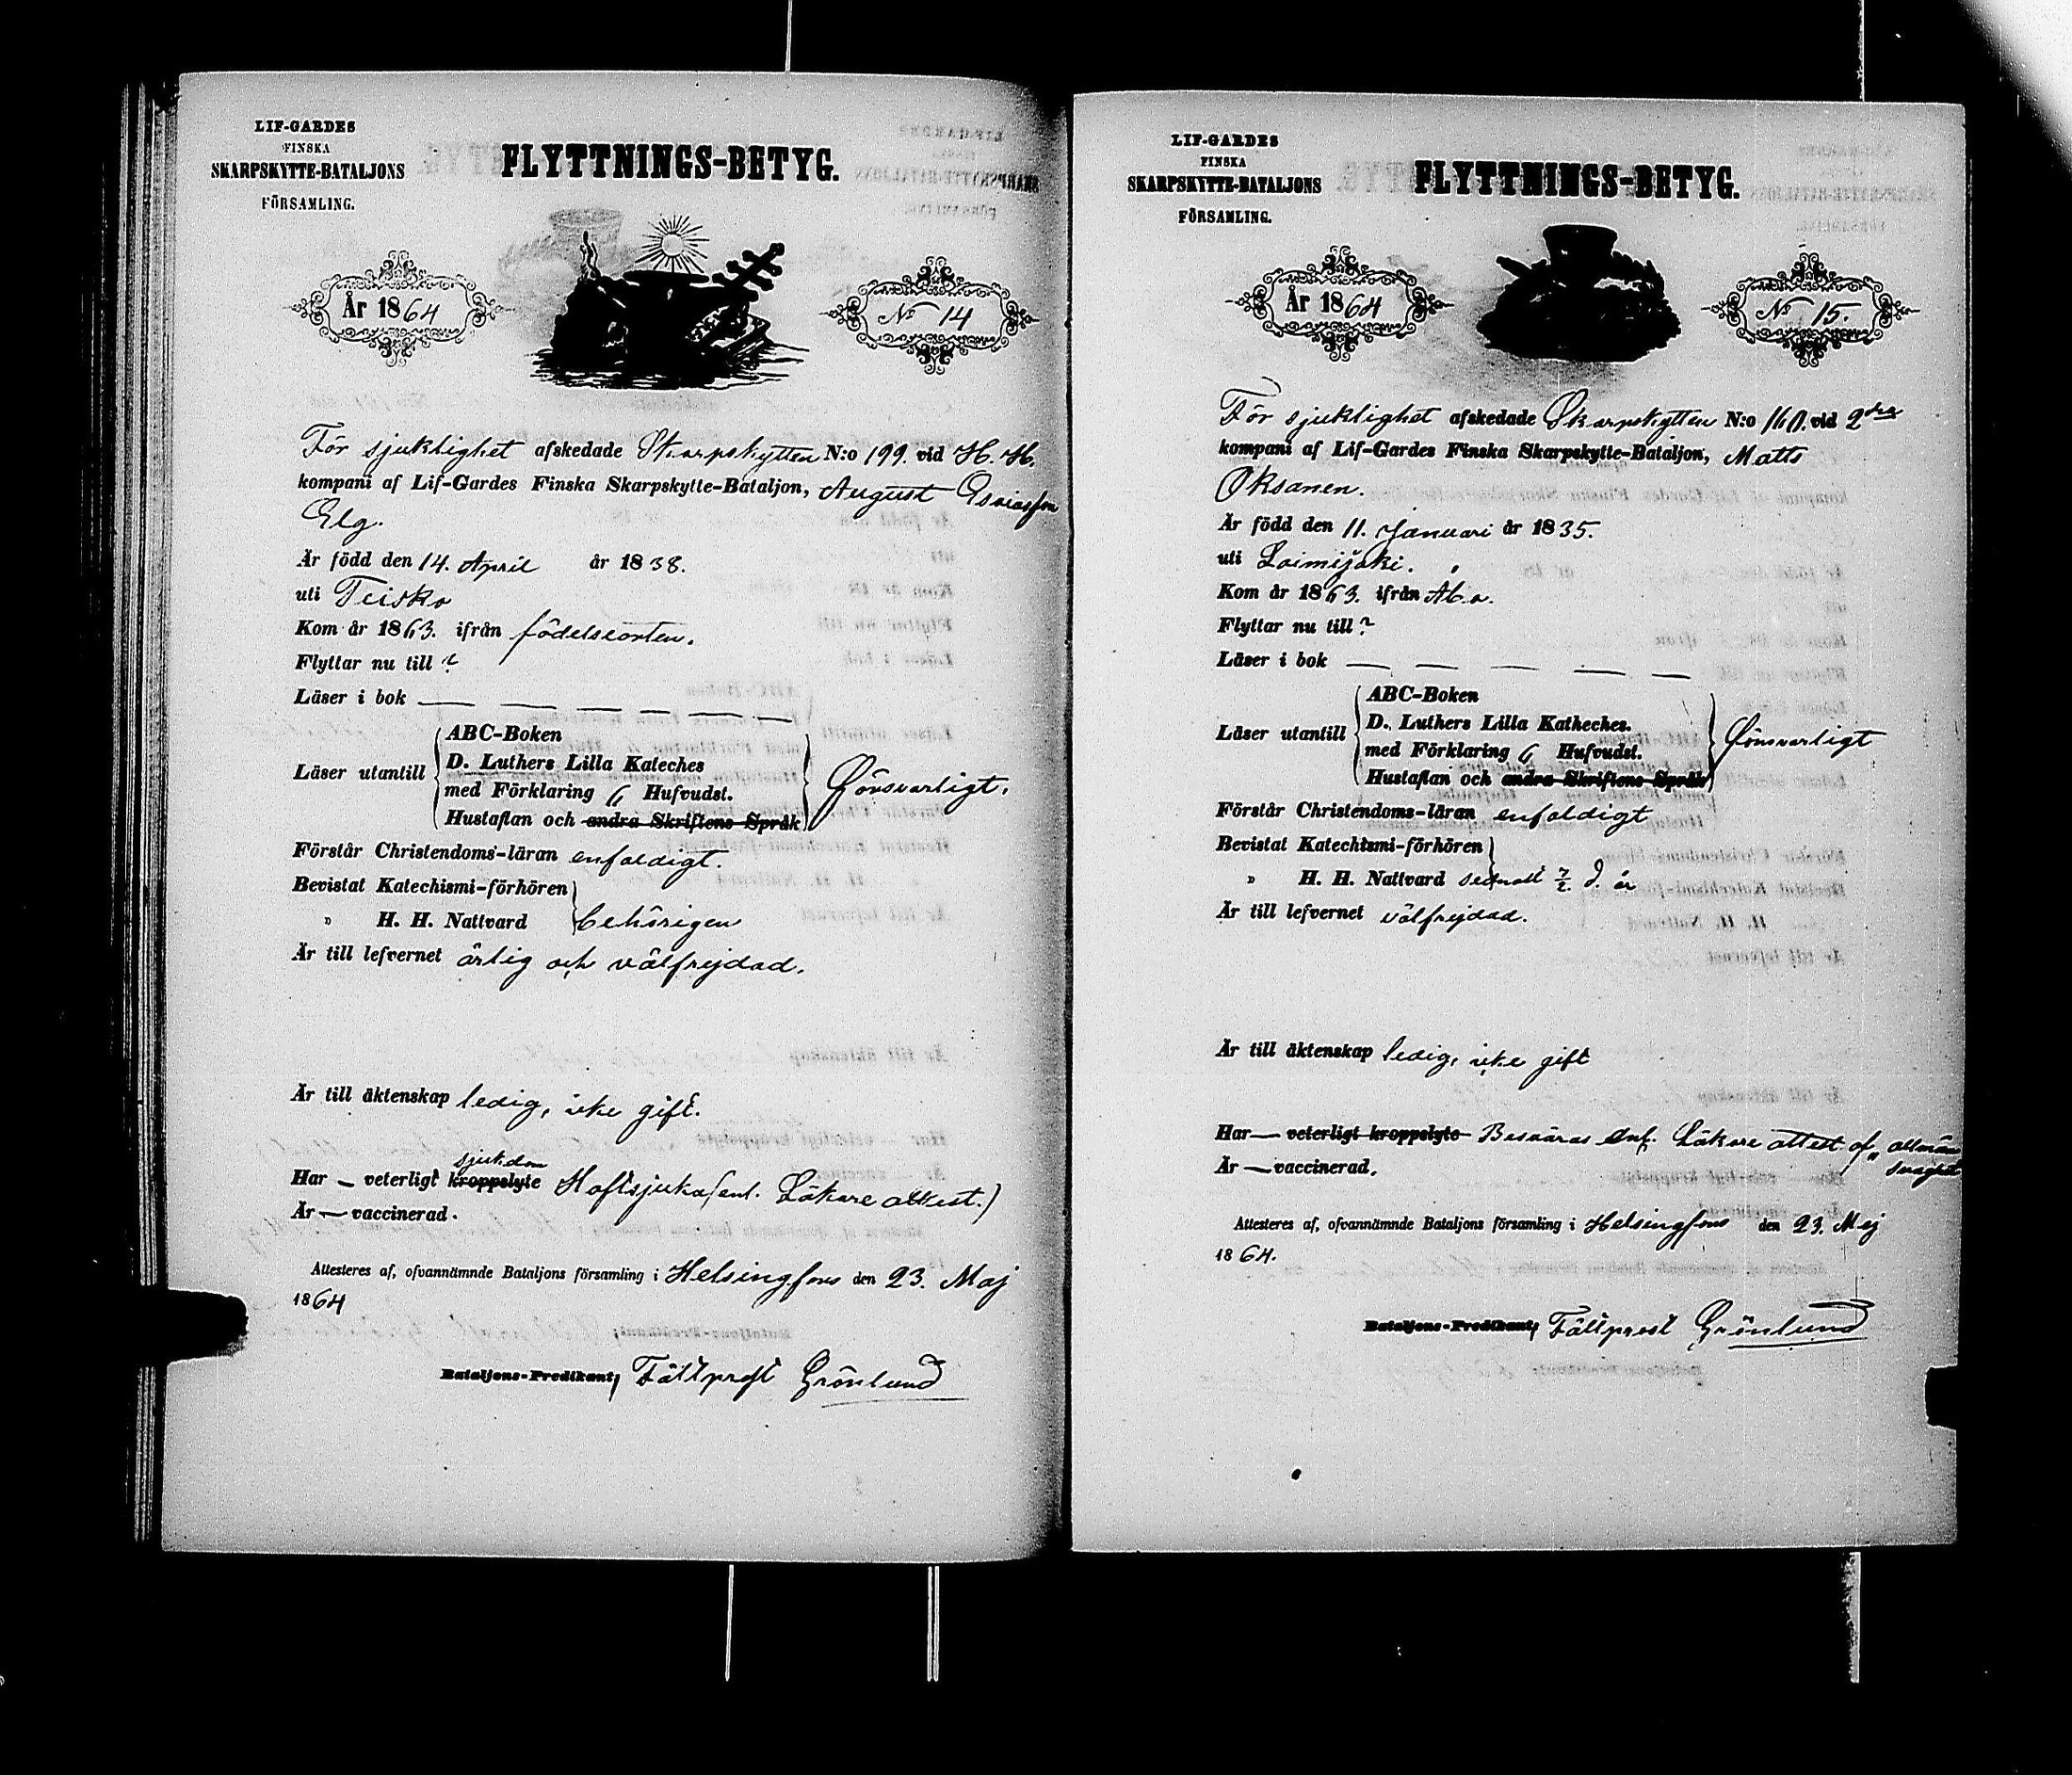 LIF-GARDES
FINSKA
SKARPSKYTTE-BATALJONS
FÖRSAMLING.
FLYTTNINGS-BETYG.
År 1864
No 14
För sjuklighet afskedade Skarpskytten N:o 199. vid H. H.
kompani af Lif-Gardes Finska Skarpskytte-Bataljon, August Esaiasson
Elg.
Är född den 14. April år 1838.
uti Teisko
Kom år 1863. ifrån födelseorten.
Flyttar nu till ?
Läser i bok — — — — — —
Läser utantill
ABC-Boken
D. Luthers Lilla Kateches
med Förklaring 6 Hufvudst.
Hustaflan och andra Skriftens Språk
försvarligt.
Förstår Christendoms-läran enfaldigt.
Bevistat Katechismi-förhören
" H. H. Nattvard behörigen
Är till lefvernet ärlig och välfrejdad.
Är till äktenskap ledig, icke gift.
sjukdom
Har — veterligt kroppslyte Höftsjuka (enl. Läkare attest.)
Är — vaccinerad.
Attesteres af, ofvannämnde Bataljons församling i Helsingfors den 23. Maj
1864
Bataljons-Predikant, Fältprest Grönlund
LIF-GARDES
FINSKA
SKARPSKYTTE-BATALJONS
FÖRSAMLING.
FLYTTNINGS-BETYG.
År 1864
No 15.
För sjuklighet afskedade Skarpskytten N:o 160. vid 2dra
kompani af Lif-Gardes Finska Skarpskytte-Bataljon, Matts
Oksanen.
Är född den 11. Januari år 1835.
uti Loimijoki.
Kom år 1863. ifrån Åbo.
Flyttar nu till ?
Läser i bok — — — — —
Läser utantill
ABC-Boken
D. Luthers Lilla Katheches.
med Förklaring 6 Hufvudst.
Hustaflan och andra Skriftens Språk
försvarligt
Förstår Christendoms-läran enfaldigt
Bevistat Katechismi-förhören
" H. H. Nattvard sednast 7/2 d. år
Är till lefvernet välfrejdad.
Är till äktenskap ledig, icke gift
Har — veterligt kroppslyte Besväras enl. Läkare attest af „allmän
svaghet
Är — vaccinerad.
Attesteres af, ofvannämnde Bataljons församling i Helsingfors den 23. Maj
1864.
Bataljons-Predikant, Fältprest Grönlund